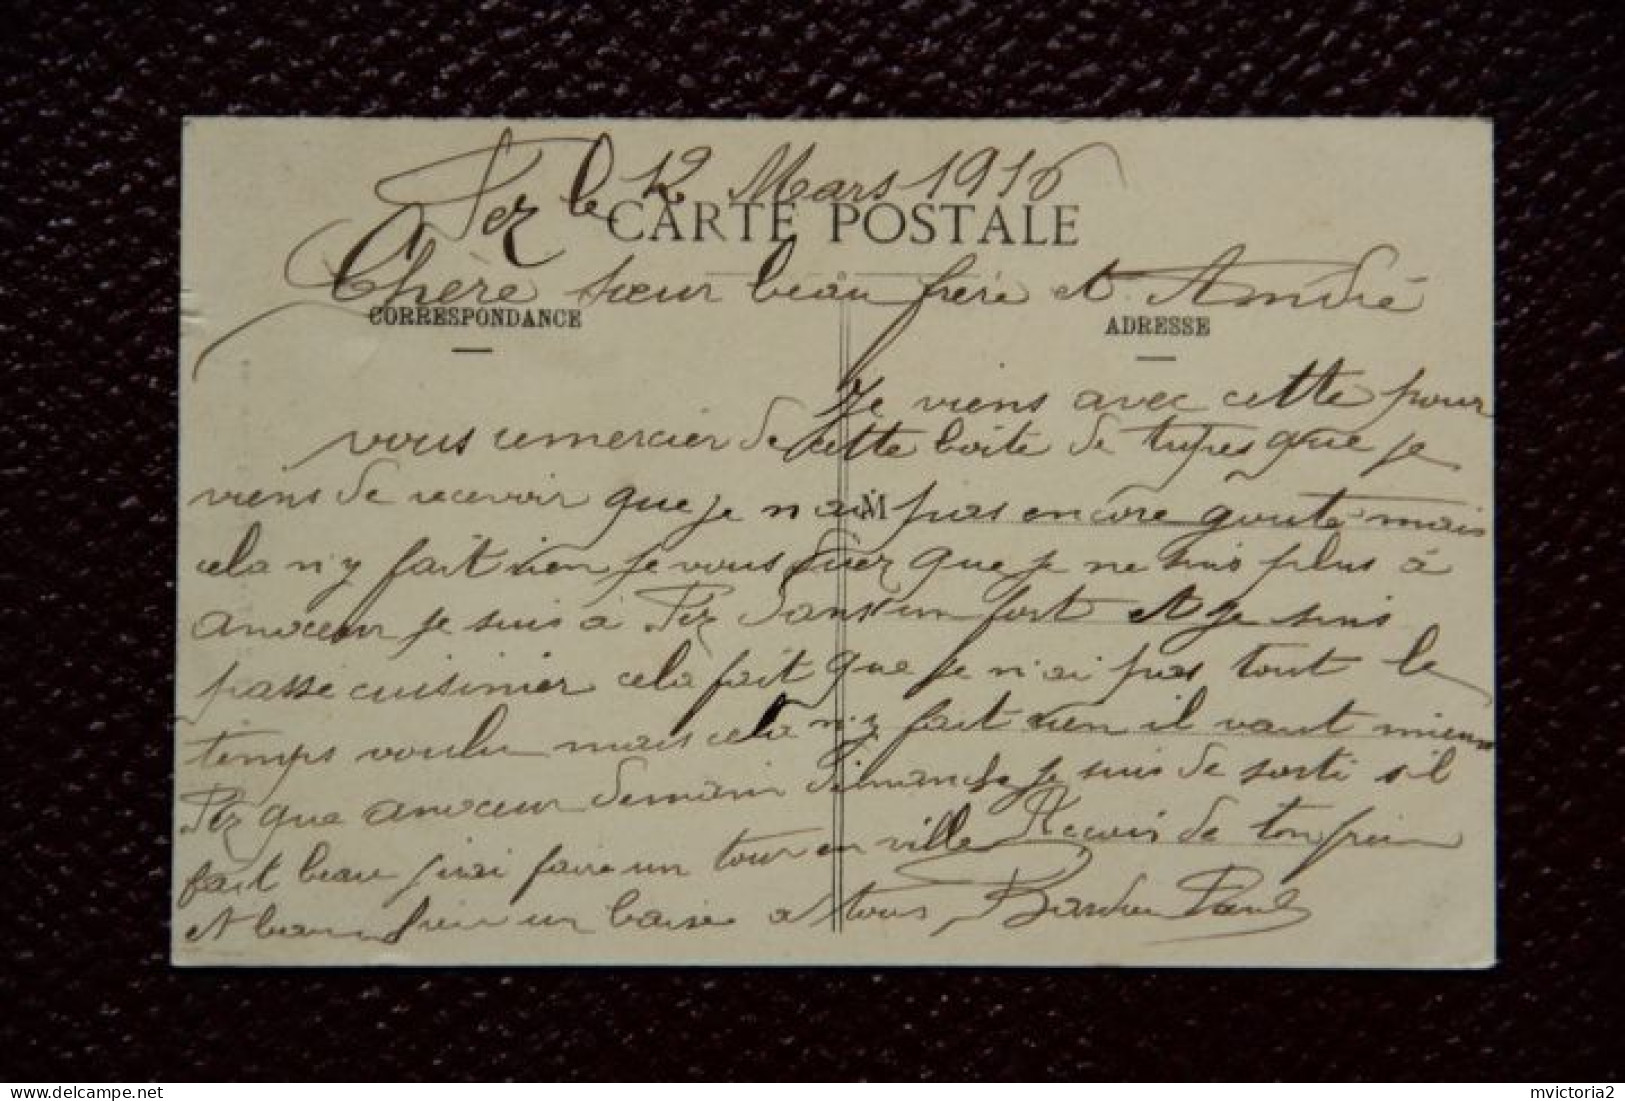 Fez le 12 Mars 1916
CARTE POSTALE
Chère sœur beau frère et André
CORRESPONDANCE
ADRESSE
Je viens avec cette pour
vous remercier de cette boite de que je
viens de recevoir que je n'ai pas encore goute mais
M
cela n'y fait rien je vous direz que je ne suis plus à
je suis à Fez dans un fort et je suis
passe cuisinier cela fait que je n'ai pas tout le
temps voulu mais cela n'y fait rien il vaut mieux
Fez que demain dimanche je suis de sorti s'il
fait beau j'irai faire un tour en ville Recois de ton frère
et beau frère un baise a tous Paul
mvictoria2